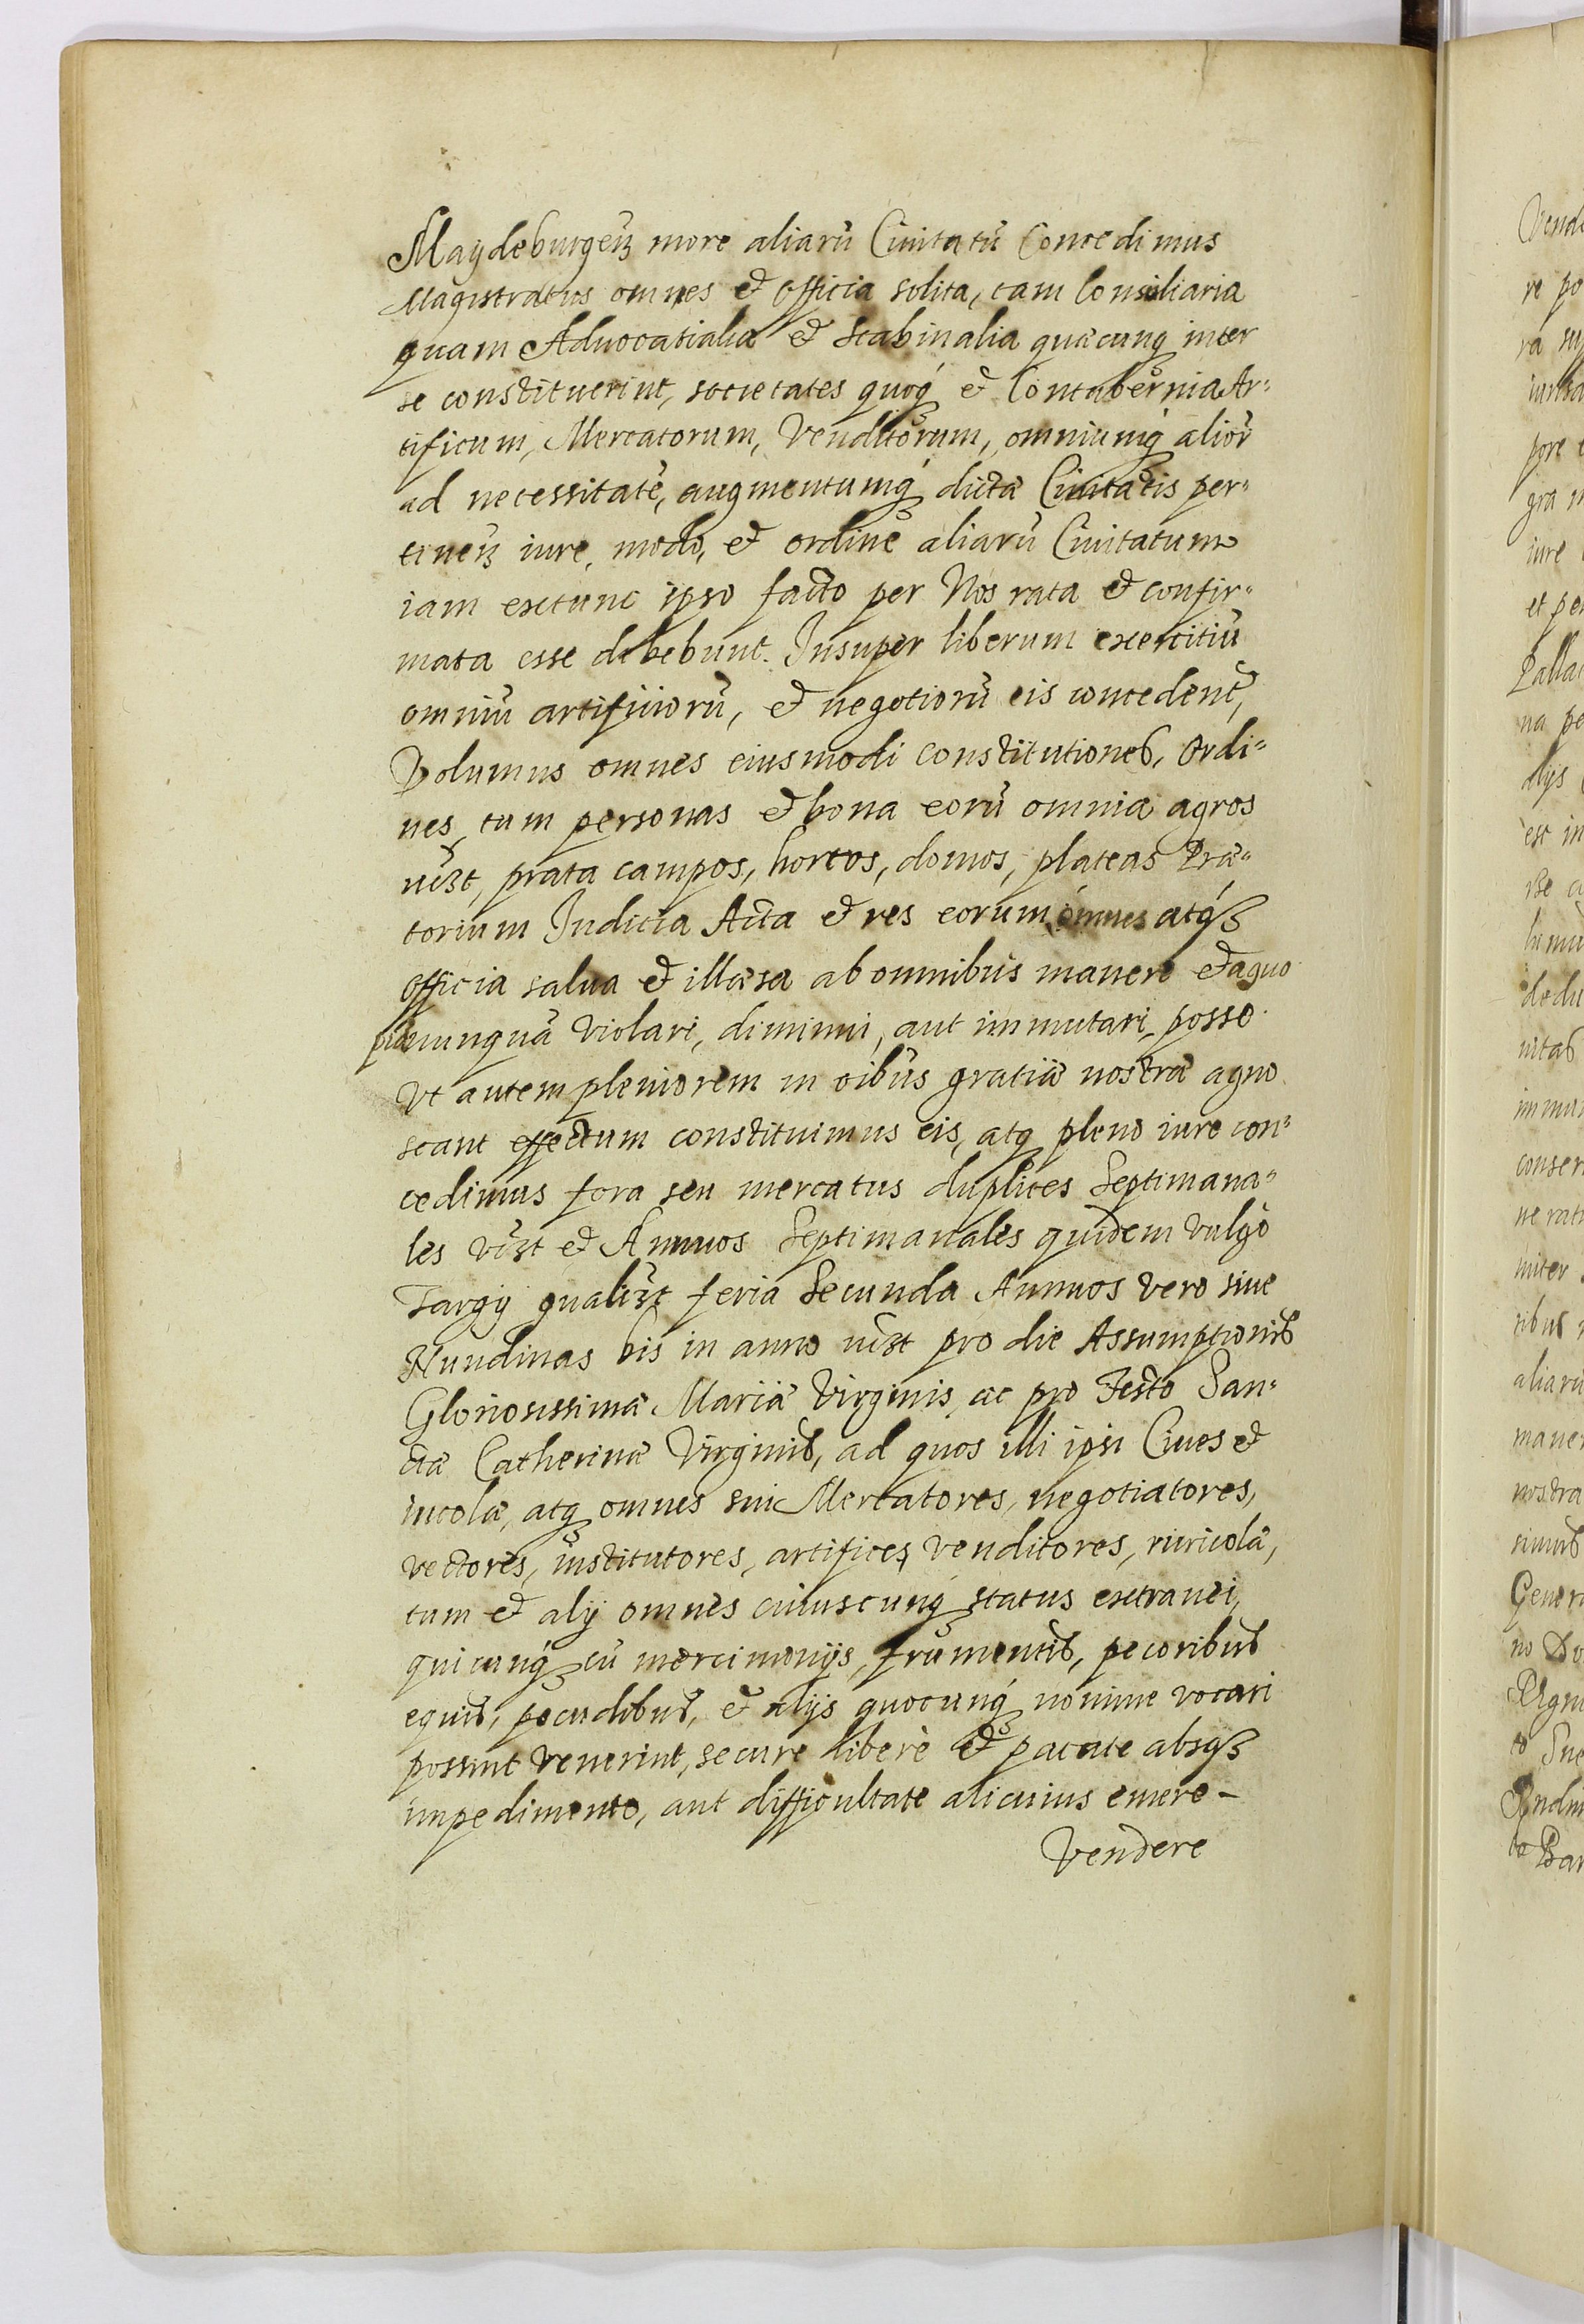 Magdeburgeñ more aliarũ Ciuitatũ Concedimus
Magistratus omnes et officia solita, tam Consiliaria
quam Aduocatialia et Scabinalia quæcunq inter
se constituerint, societates quoq́ et Contubernia Ar-
tificum, Mercatorum, Venditorum, omniumq́ alior̃
ad necessitatẽ, augmentumq́ dictæ Ciuitatis per-
tineñ iure, modo, et ordine aliarũ Ciuitatum
iam extunc ipso facto per Nos rata et confir-
mata esse debebunt. Insuper liberum exercitiũ
omniũ artificiorũ, et negotiorũ eis concedent̃,
Volumus omnes eiusmodi constitutiones, Ordi-
nes, tum personas et bona eorũ omnia agros
vizt, prata campos, hortos, domos, plateas Præ-
torium Iudicia Acta et res eorum omnes atq́
officia salua et illæsa ab omnibus manere et a quo
piã nunquã violari, diminui, aut immutari posse
Vt autem pleniorem in oibus gratiæ nostræ agno
scant effectum constituimus eis, atq pleno iure con-
cedimus fora seu mercatus duplices Septimana-
les vizt et Annuos Septimanales quidem vulgo
Targij qualizt feria Secunda Annuos vero siue
Nundinas bis in anno vizt pro die Assumptionis
Gloriosissimæ Mariæ Virginis, ac pro Festo San-
ctæ Catherinæ Virginis, ad quos illi ipsi Ciues et
incolæ, atq omnes sui Mercatores, negotiatores,
vectores, institutores, artifices, venditores, ruricolæ,
tum et alij omnes cuiuscunq́ status extranei,
quicunq́ cũ mercimonijs, frumentis, pecoribus
equis, pecudibus, et alijs quocunq́ nomine vocari
possint venerint, secure liberè et pacate absq́
impedimento, aut difficultate alicuius emere-
Vendere